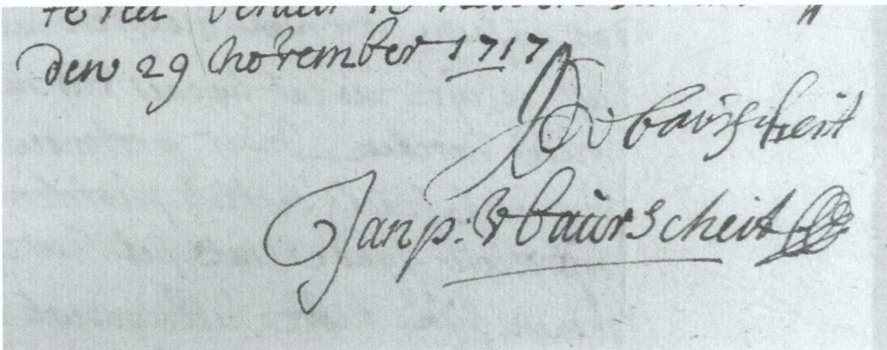 den 29 november 1717
v baurscheit
Jan p: v baurscheit